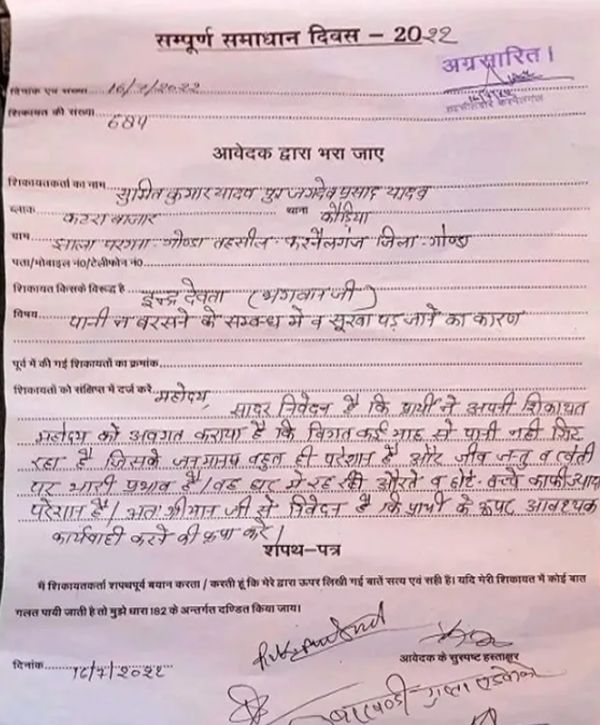 सम्पूर्ण समाधान दिवस – 2022
अग्रसारित।
दिनांक एवं संख्या 16/7/2022
शिकायत की संख्या
684
आवेदक द्वारा भरा जाए
शिकायतकर्ता का नाम सुमित कुमार यादव पुत्र जगदेव प्रसाद यादव
ब्लाक कटरा बाजार थाना कौडिया
ग्राम झाला परगना गोण्डा तहसील-करनैलगंज जिला-गोण्डा
पता/मोबाइल नं0/टेलीफोन नं0
शिकायत किसके विरूद्ध है इन्द्र देवता (भगवान जी)
विषय पानी न बरसने के सम्बन्ध में व सूखा पड़ जाने का कारण
पूर्व में की गई शिकायतों का क्रमांक
शिकायतों को संक्षिप्त में दर्ज करे महोदय,
सादर निवेदन है कि प्रार्थी ने अपनी शिकायत
महोदय को अवगत कराया है कि विगत कई माह से पानी नही गिर
रहा है जिसके जनमानष बहुत ही परेशान है और जीव जन्तु व खेती
पर भारी प्रभाव है। वह घर में रह रही औरते व छोटे-बच्चे काफी ज्यादा
परेशान है। अतः श्रीमान जी से निवेदन है कि प्रार्थी के ऊपर आवश्यक
कार्यवाही करने की कृपा करे।
शपथ–पत्र
मैं शिकायतकर्ता शपथपूर्व बयान करता / करती हूं कि मेरे द्वारा ऊपर लिखी गई बातें सत्य एवं सही है। यदि मेरी शिकायत में कोई बात
गलत पायी जाती है तो मुझे धारा 182 के अन्तर्गत दण्डित किया जाय।
आवेदक के सुस्पष्ट हस्ताक्षर
दिनांक 16/7/2022